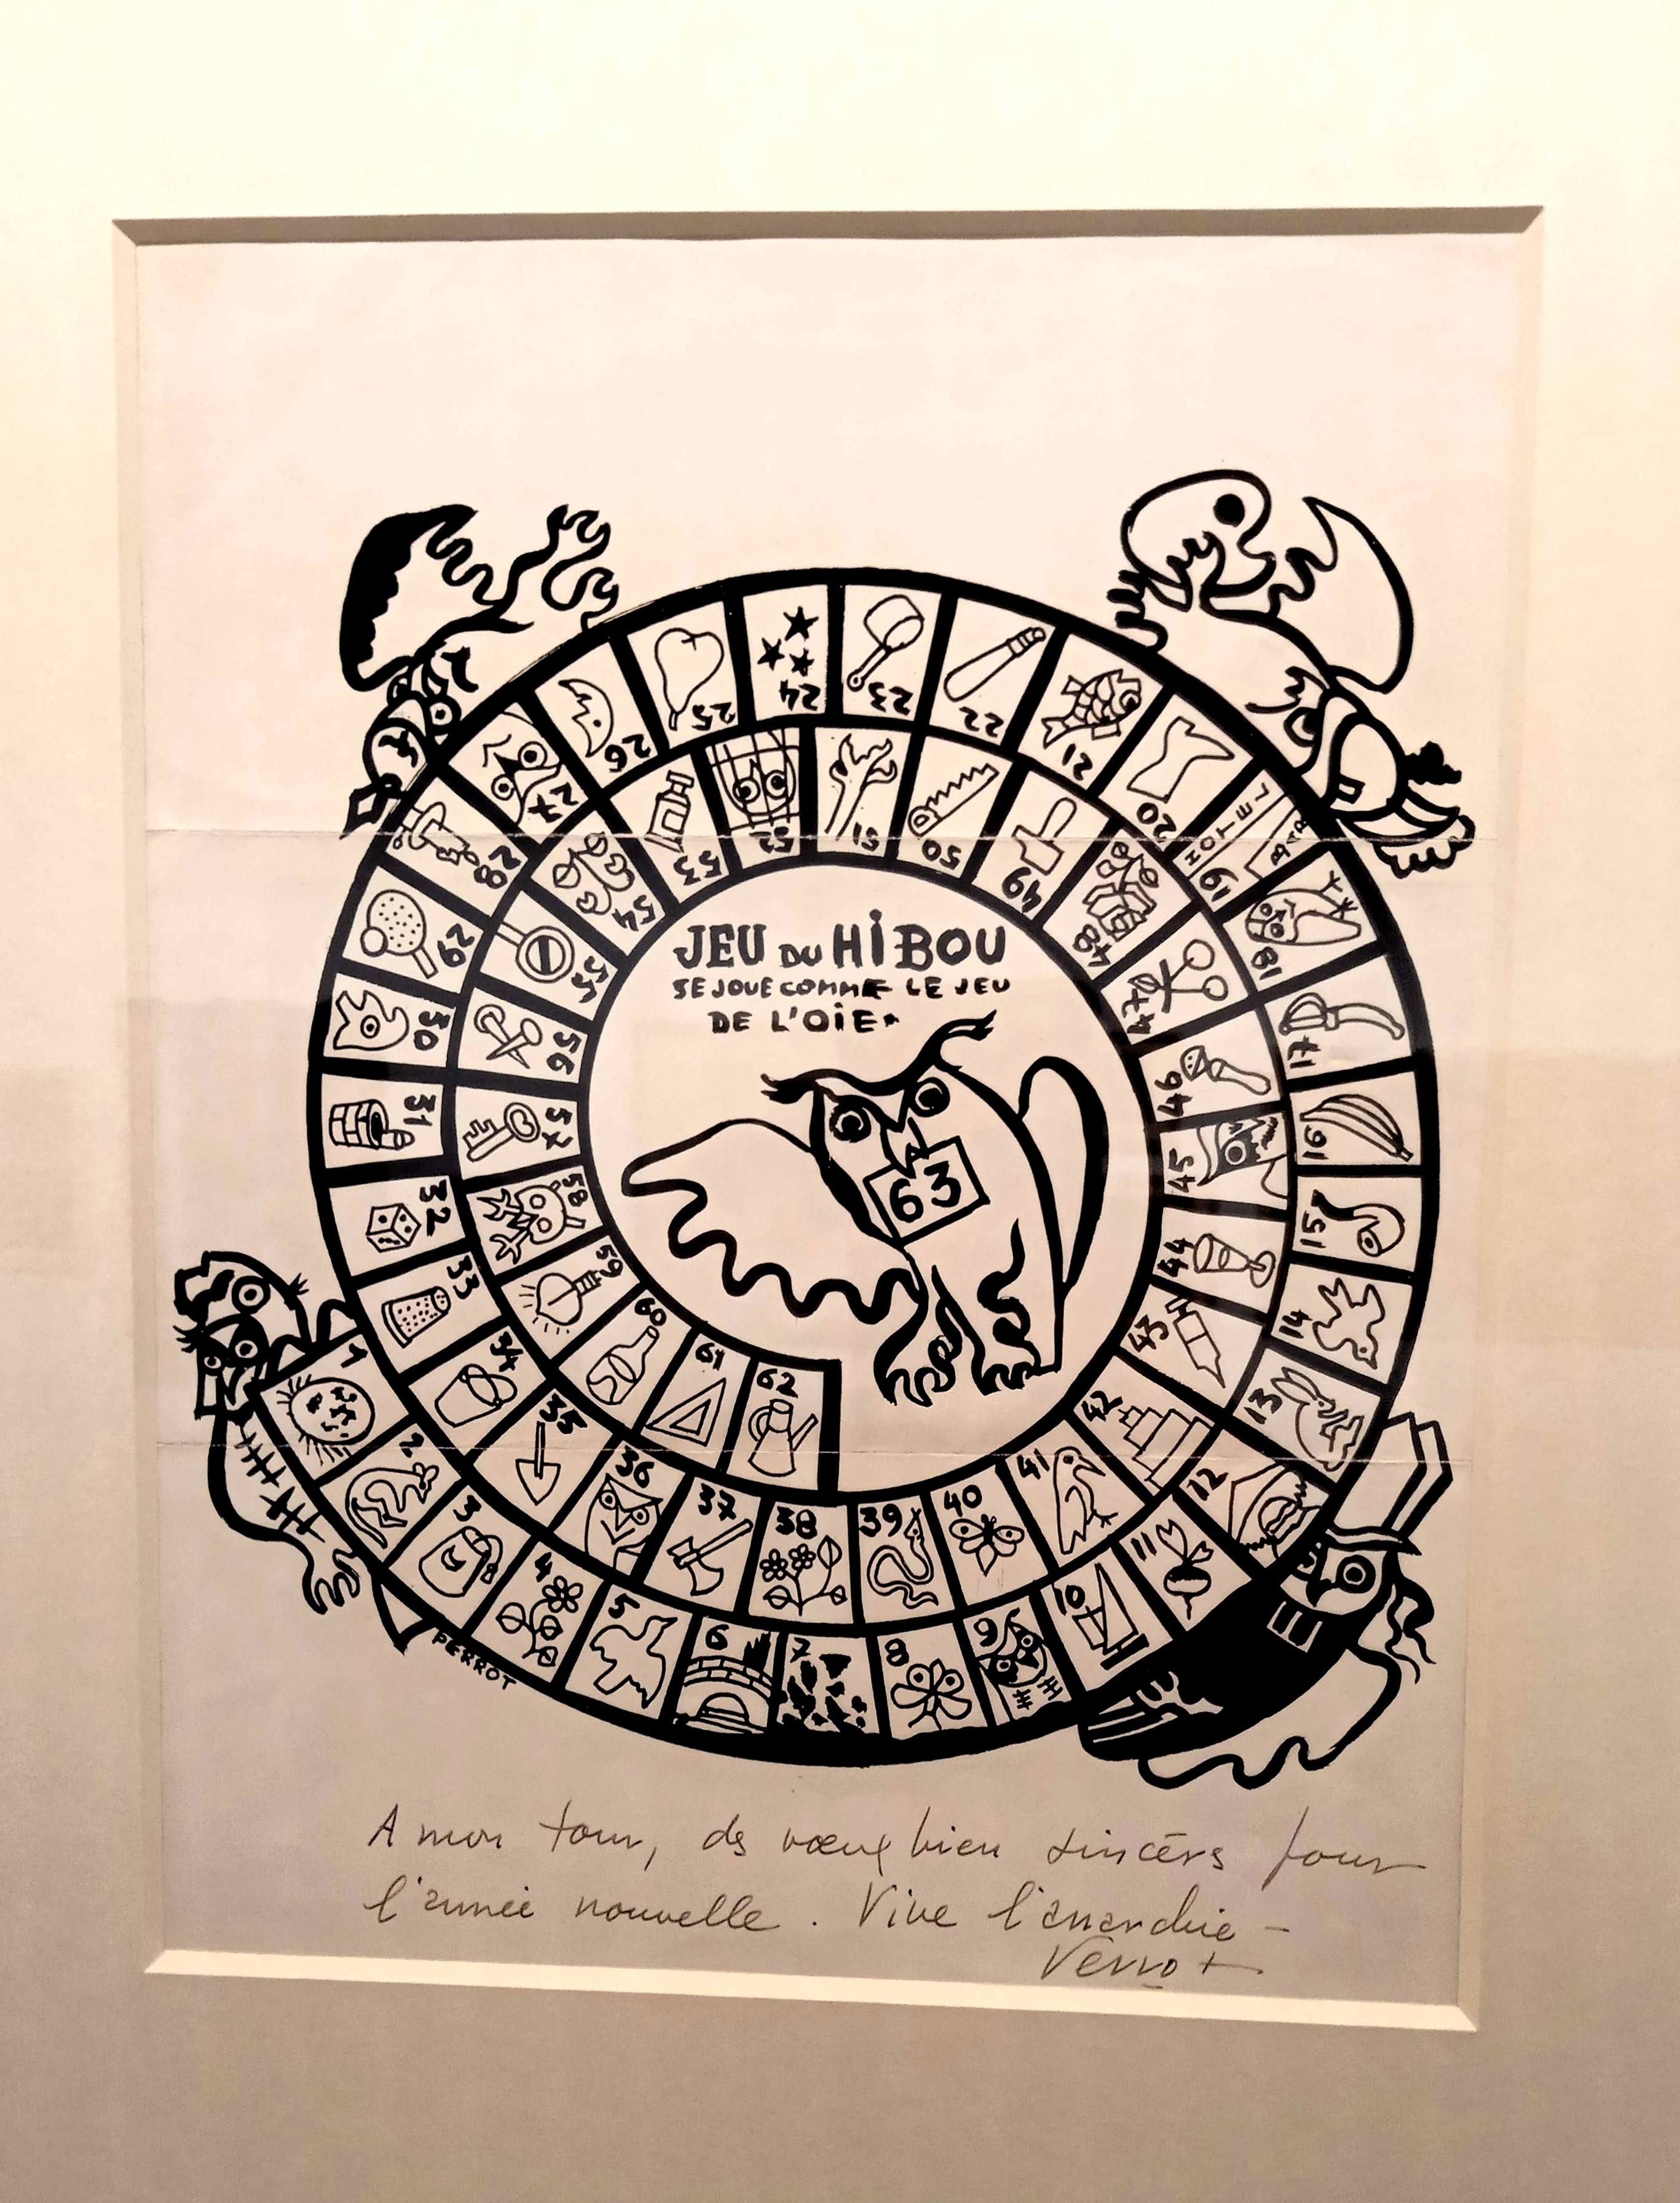 JEU DU HiBOU
SE JOUE COMME LE JEU
DE L'OiE
63
1
2
3
4
5
6
7
8
9
10
11
12
13
14
15
16
17
18
HOTEL
BAR
19
20
21
22
23
24
25
26
27
28
29
30
31
32
33
34
35
36
37
38
39
40
41
42
43
44
45
46
47
48
49
50
51
52
53
54
55
56
57
58
59
60
61
62
PERROT
A mon tour, des vœux bien sincères pour
l'année nouvelle. Vive l'anarchie -
Perrot